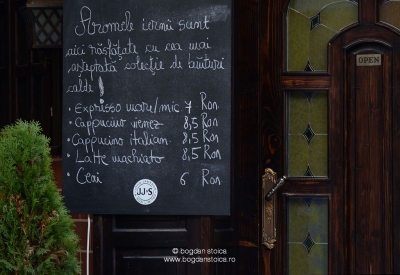 Aromele iernii sunt
aici răsfățate cu cea mai
așteptată colecție de băuturi
calde!
• Expresso mare/mic 7 Ron
• Cappucino vienez 8,5 Ron
• Cappucino italian 8,5 Ron
• Latte machiato 8,5 Ron
• Ceai 6 Ron
JJ·S
OPEN
© bogdan stoica
www.bogdanstoica.ro